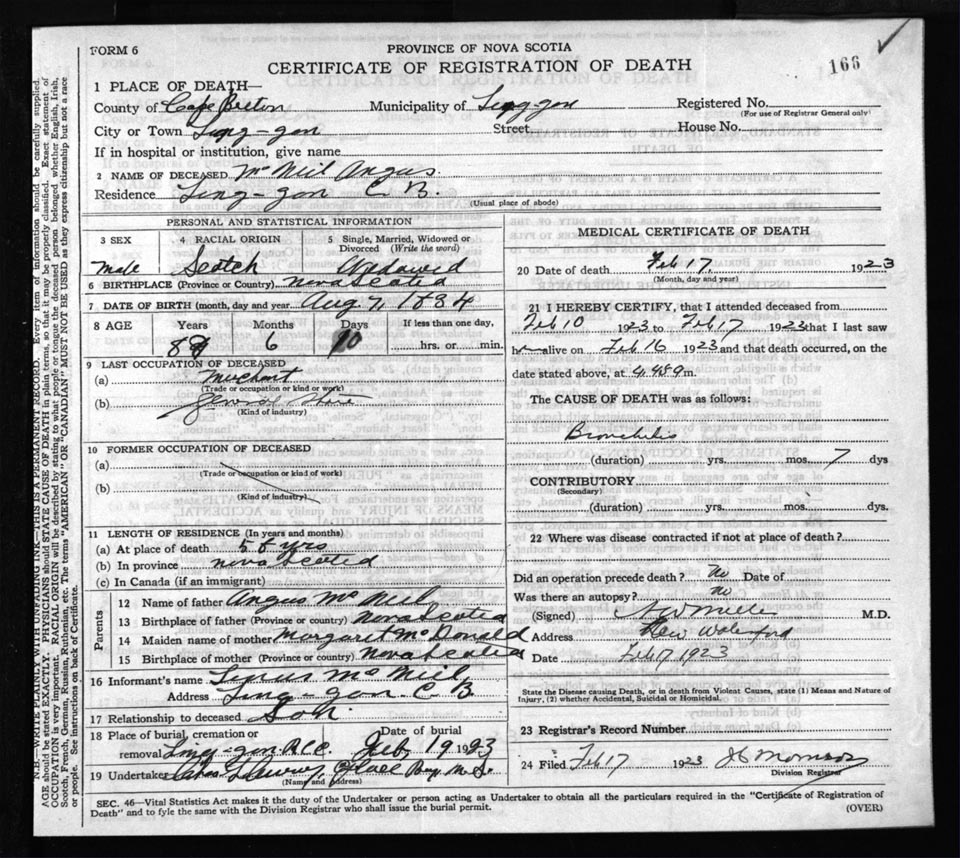 FORM 6
PROVINCE OF NOVA SCOTIA
166
CERTIFICATE OF REGISTRATION OF DEATH
1 PLACE OF DEATH—
County of Cape Breton Municipality of Ling-gon Registered No.
(For use of Registrar General only)
City or Town Ling-gon Street House No.
If in hospital or institution, give name
2 NAME OF DECEASED McNeil Angus
Residence Ling-gon C. B.
(Usual place of abode)
PERSONAL AND STATISTICAL INFORMATION
3 SEX 4 RACIAL ORIGIN 5 Single, Married, Widowed or Divorced (Write the word)
Male Scotch Widowed
6 BIRTHPLACE (Province or Country) Nova Scotia
7 DATE OF BIRTH (month, day and year) Aug 7, 1834
8 AGE Years Months Days If less than one day,
88 6 10 hrs. or min.
9 LAST OCCUPATION OF DECEASED
(a) Merchant
(Trade or occupation or kind or work)
(b) General Store
(Kind of industry)
10 FORMER OCCUPATION OF DECEASED
(a)
(Trade or occupation or kind of work)
(b)
(Kind of industry)
11 LENGTH OF RESIDENCE (In years and months)
(a) At place of death yrs
(b) In province Nova Scotia
(c) In Canada (if an immigrant)
Parents
12 Name of father Angus McNeil
13 Birthplace of father (Province or country) Nova Scotia
14 Maiden name of mother Margaret McDonald
15 Birthplace of mother (Province or country) Nova Scotia
16 Informant's name McNeil
Address Ling-gon C. B.
17 Relationship to deceased Son
18 Place of burial, cremation or Date of burial
removal Feb 19 1923
19 Undertaker
(Name and address)
MEDICAL CERTIFICATE OF DEATH
20 Date of death Feb 17, 1923
(Month, day and year)
21 I HEREBY CERTIFY, that I attended deceased from
Feb 10 1923 to Feb 17 1923 that I last saw
alive on Feb 16 1923 and that death occurred, on the
date stated above, at m.
The CAUSE OF DEATH was as follows:
Bronchitis
(duration) yrs. mos. 7 dys
CONTRIBUTORY
(Secondary)
(duration) yrs. mos. dys.
22 Where was disease contracted if not at place of death?
Did an operation precede death? No Date of
Was there an autopsy? No
(Signed) M.D.
Address New Waterford
Date Feb 17 1923
State the Disease causing Death, or in death from Violent Causes, state (1) Means and Nature of
Injury, (2) whether Accidental, Suicidal or Homicidal.
23 Registrar's Record Number
24 Filed Feb 17 1923
Division Registrar
SEC. 46—Vital Statistics Act makes it the duty of the Undertaker or person acting as Undertaker to obtain all the particulars required in the "Certificate of Registration of
Death" and to fyle the same with the Division Registrar who shall issue the burial permit.
(OVER)
N.B.—WRITE PLAINLY WITH UNFADING INK—THIS IS A PERMANENT RECORD. Every item of information should be carefully supplied.
AGE should be stated EXACTLY. PHYSICIANS should STATE CAUSE OF DEATH in plain terms, so that it may be properly classified. Exact statement of
OCCUPATION is very important. RACIAL ORIGIN will be described by stating to what people or tongue the deceased person belonged, whether English, Irish,
Scotch, French, German, Russian, Ruthenian, etc. The terms "AMERICAN" OR "CANADIAN" MUST NOT BE USED as they express citizenship but not a race
or people. See instructions on back of Certificate.